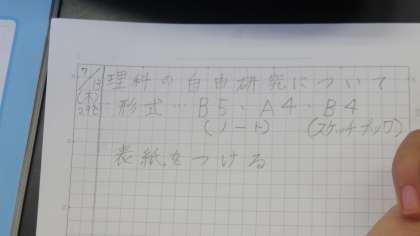 7/13 理科の自由研究について
(木) 形式…B5・A4・B4
29℃ (ノート) (スケッチブック)
表紙をつける